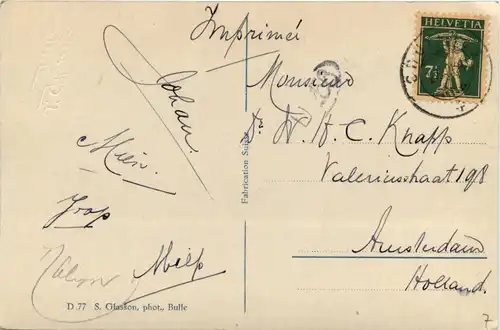 Imprimé
HELVETIA
7½
Johan.
Monsieur
Drs. H. H. C. Knapp
Valeriusstraat 198
Amsterdam
Holland.
Mien.
Joop
Miep
Fabrication Suisse
D 77 S. Glasson, phot., Bulle
7